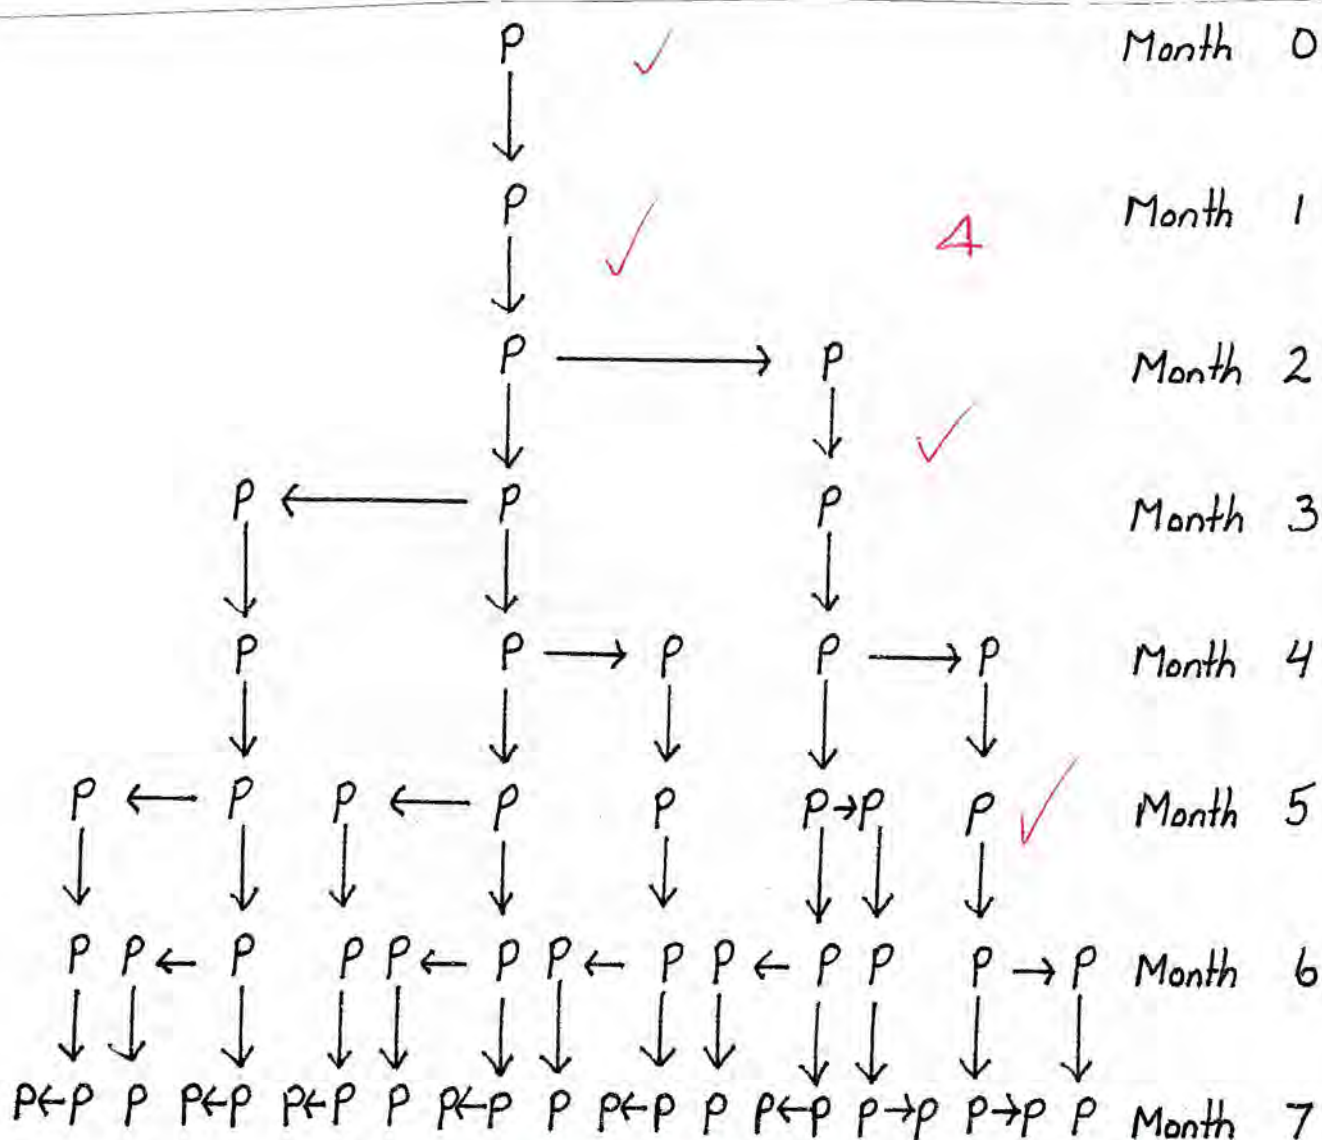 P Month 0
P 4 Month 1
P P Month 2
P P P Month 3
P P P P P Month 4
P P P P P P P P Month 5
P P P P P P P P P P P P P Month 6
P P P P P P P P P P P P P P P P P P P P P Month 7